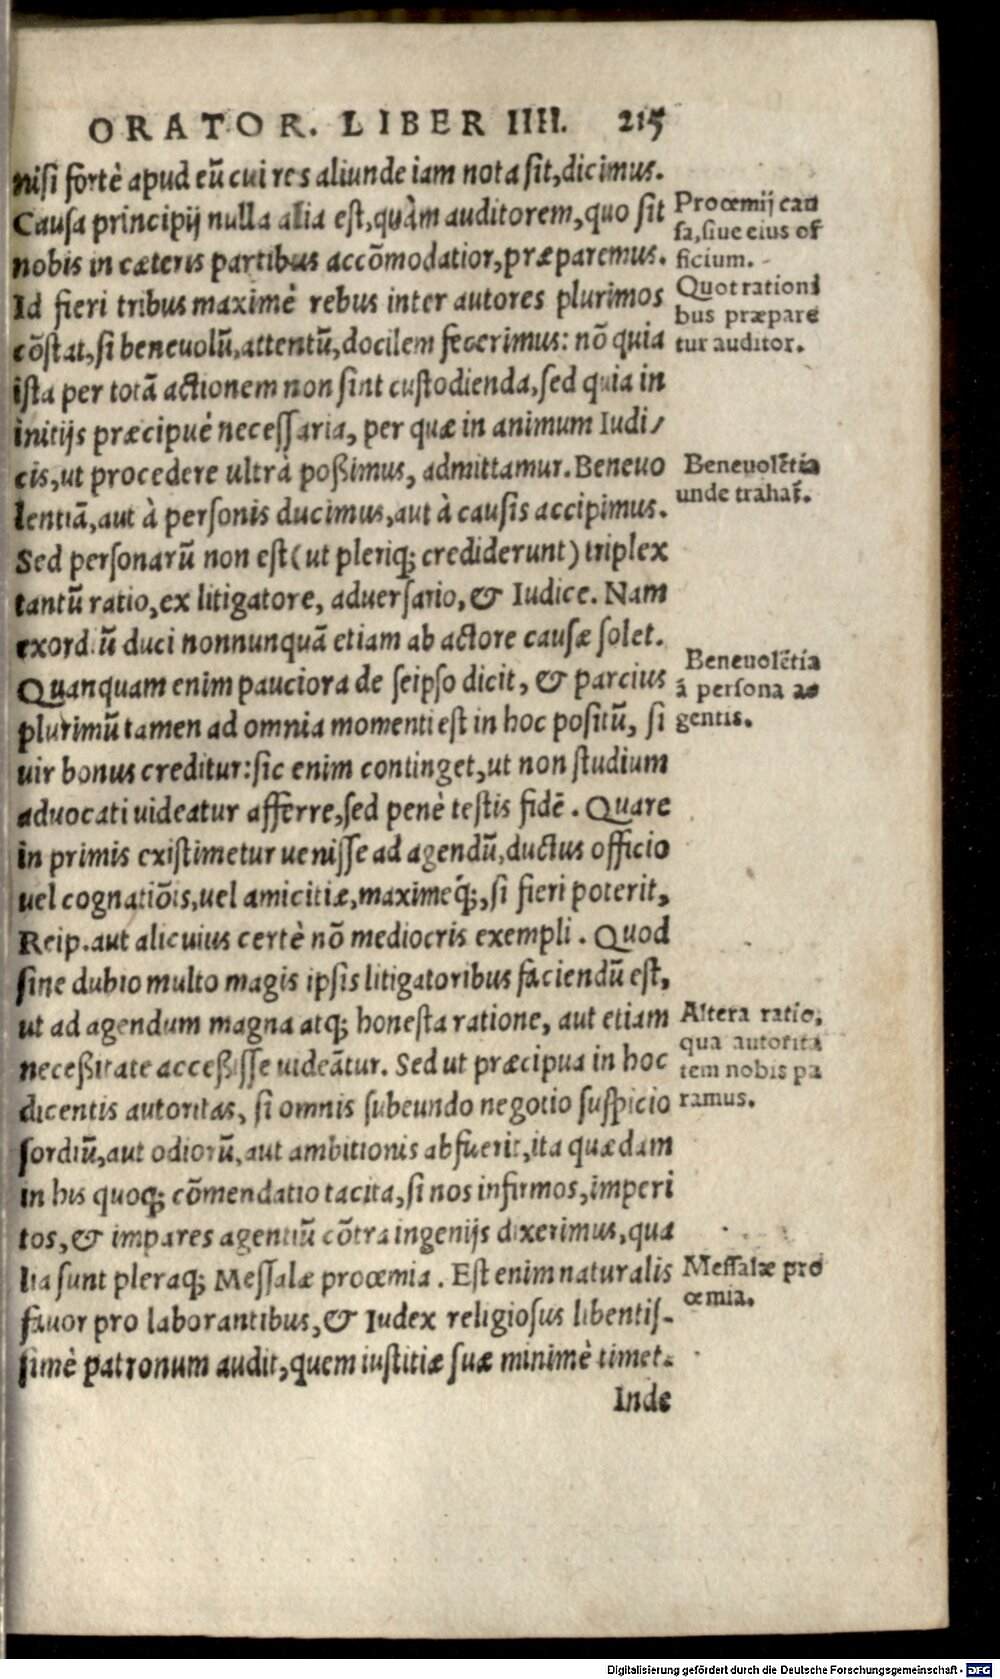 ORATOR. LIBER IIII. 215
nisi fortè apud eũ cui res aliunde iam nota sit, dicimus.
Causa principij nulla alia est, quàm auditorem, quo sit
nobis in cæteris partibus accõmodatior, præparemus.
Id fieri tribus maximè rebus inter autores plurimos
cõstat, si beneuolũ, attentũ, docilem fecerimus: nõ quia
ista per totã actionem non sint custodienda, sed quia in
initijs præcipuè necessaria, per quæ in animum Iudi/
cis, ut procedere ultrà poßimus, admittamur. Beneuo
lentiã, aut à personis ducimus, aut à causis accipimus.
Sed personarũ non est (ut pleriq; crediderunt) triplex
tantũ ratio, ex litigatore, aduersario, & Iudice. Nam
exordiũ duci nonnunquã etiam ab actore causæ solet.
Quanquam enim pauciora de seipso dicit, & parcius
plurimũ tamen ad omnia momenti est in hoc positũ, si
uir bonus creditur: sic enim continget, ut non studium
aduocati uideatur afferre, sed penè testis fidẽ. Quare
in primis existimetur uenisse ad agendũ, ductus officio
uel cognatiõis, uel amicitiæ, maximeq́;, si fieri poterit,
Reip. aut alicuius certè nõ mediocris exempli. Quod
sine dubio multo magis ipsis litigatoribus faciendũ est,
ut ad agendum magna atq; honesta ratione, aut etiam
neceßitate acceßisse uideãtur. Sed ut præcipua in hoc
dicentis autoritas, si omnis subeundo negotio suspicio
sordiũ, aut odiorũ, aut ambitionis abfuerit, ita quædam
in his quoq; cõmendatio tacita, si nos infirmos, imperi
tos, & impares agentiũ cõtra ingenijs dixerimus, qua
lia sunt pleraq; Messalæ proœmia. Est enim naturalis
fauor pro laborantibus, & Iudex religiosus libentis-
simè patronum audit, quem iustitiæ suæ minimè timet.
Inde
Proœmij cau
sa, siue eius of
ficium.
Quot rationi
bus præpare
tur auditor.
Beneuolẽtia
unde trahat̃.
Beneuolẽtia
ã persona a=
gentis.
Altera ratio,
qua autorita
tem nobis pa
ramus.
Messalæ pro
œmia.
Digitalisierung gefördert durch die Deutsche Forschungsgemeinschaft - DFG